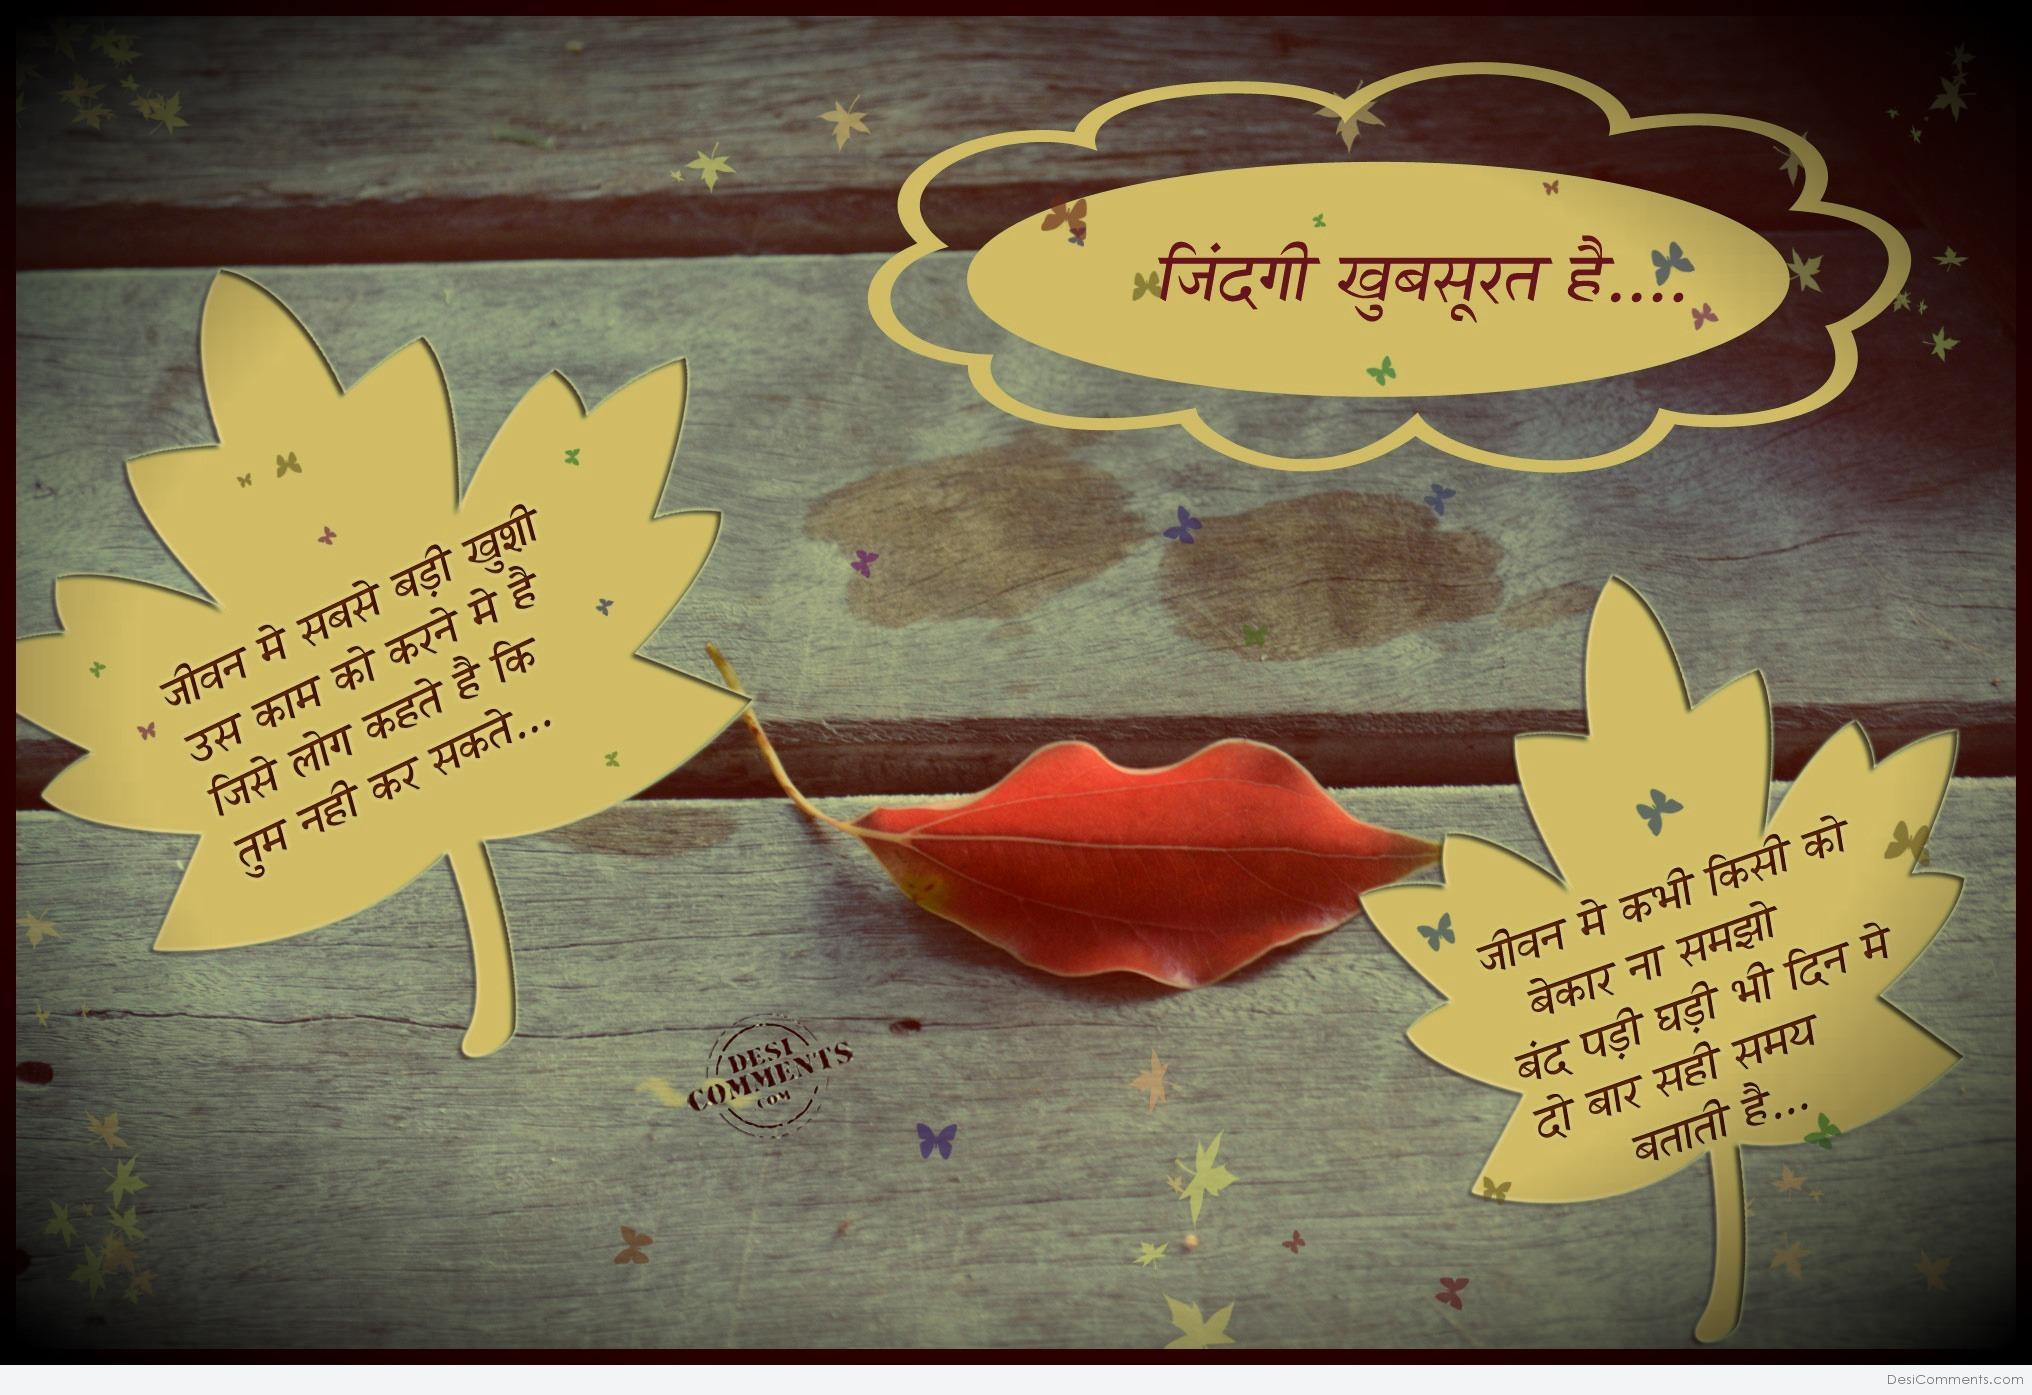 जिंदगी खुबसूरत है....
जीवन मे सबसे बड़ी खुशी
उस काम को करने मे है
जिसे लोग कहते है कि
तुम नही कर सकते...
जीवन मे कभी किसी को
बेकार ना समझो
बंद पड़ी घड़ी भी दिन मे
दो बार सही समय
बताती है...
DESI
COMMENTS
COM
DesiComments.com